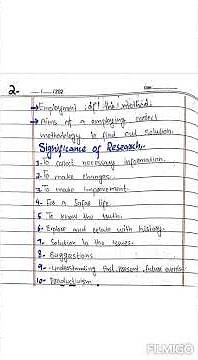 2-
Employment of this method:
Aims of a employing correct
methodology to find out solution.
Significance of Research:-
1- To collect necessary information.
2- To make changes.
3- To make improvement.
4- For a Safer life.
5 To know the truth.
6- Explore and relate with history.
7- Solution to the issues.
8- Suggestions
9- Understanding Past, Present, future events
10- Productivism.
FILMIGO